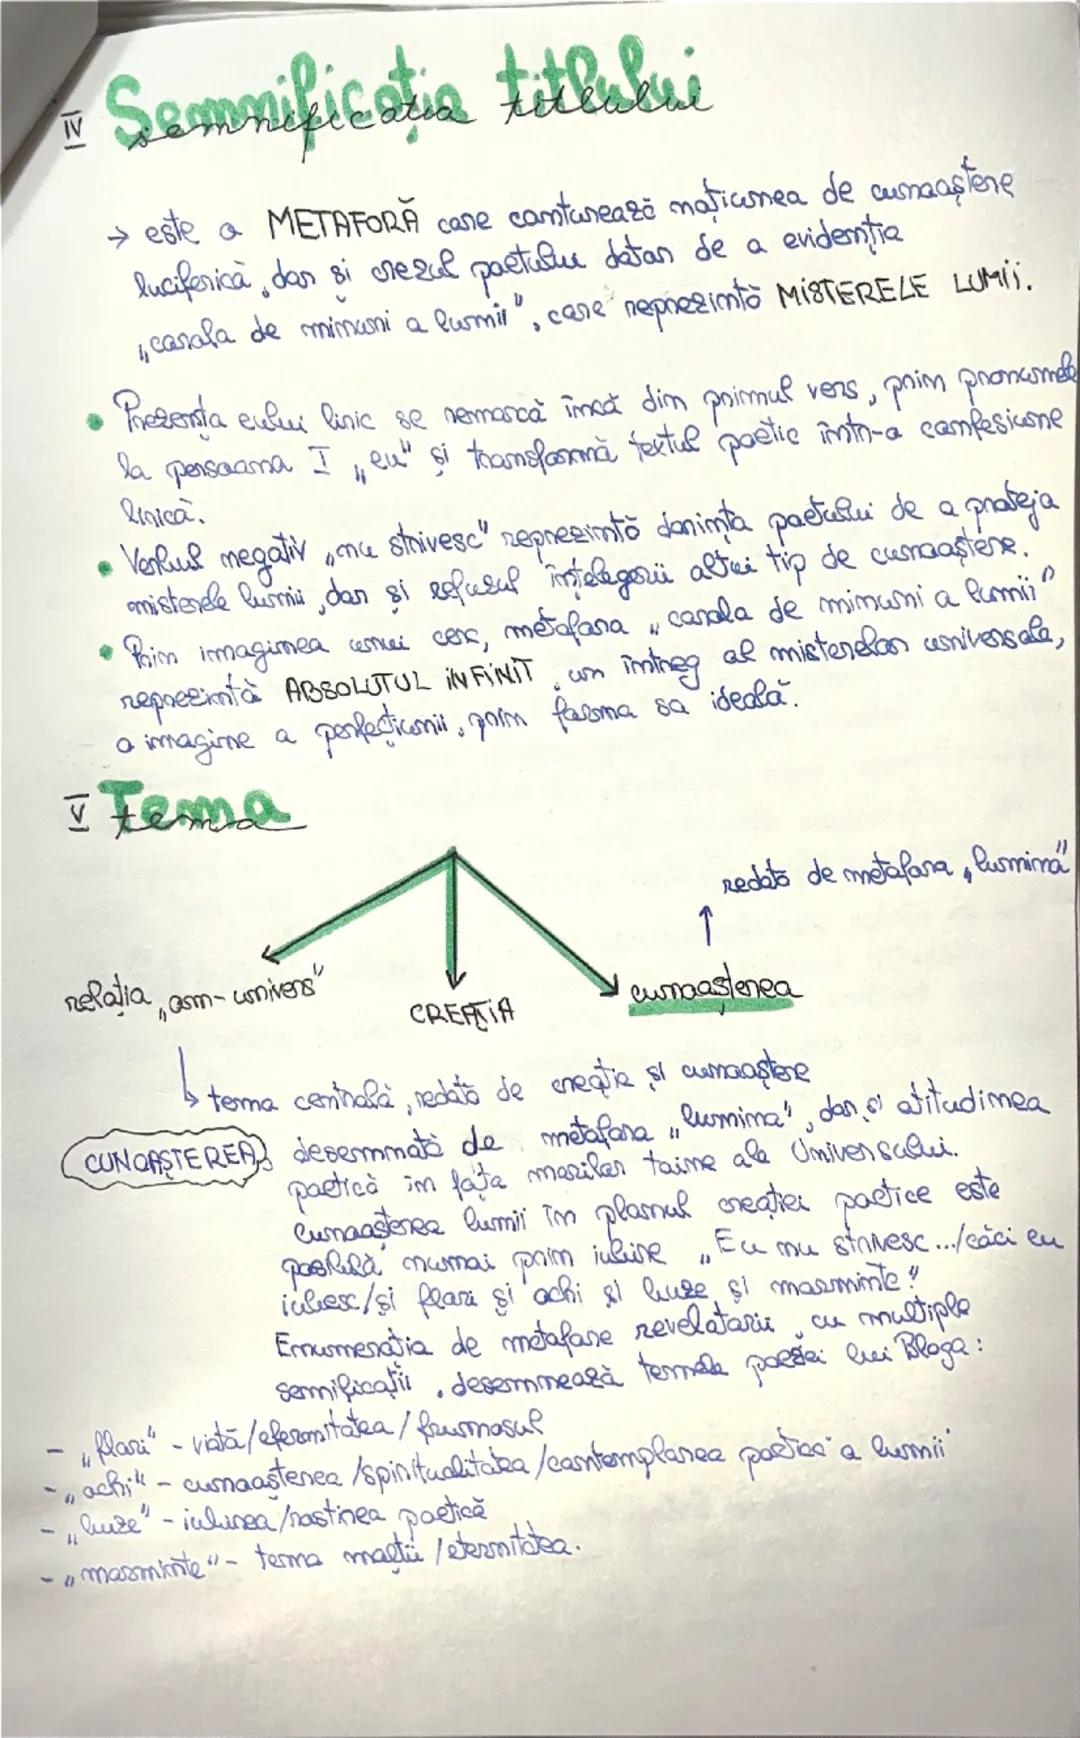 IV Semnificația titlului
semnificatia titlului
→ este o METAFORĂ care conturează noțiunea de cunoaștere
luciferică, dar și crezul poetului dator de a evidenția
„corola de minuni a lumii", care reprezintă MISTERELE LUMII.
• Prezența eului liric se remarcă încă din primul vers, prin pronumele
la persoana I „eu" și transformă textul poetic într-o confesiune
lirică.
• Verbul negativ „nu strivesc" reprezintă dorința poetului de a proteja
misterele lumii, dar și refuzul înțelegerii altui tip de cunoaștere.
• Prin imaginea unui cerc, metafora „corola de minuni a lumii"
reprezintă ABSOLUTUL INFINIT, un întreg al misterelor universale,
o imagine a perfecțiunii, prin forma sa ideală.
V Tema
tema
redată de metafora „lumină"
↑
relația „om-univers"
CREAȚIA
cunoașterea
↳ tema centrală, redată de creație și cunoaștere
CUNOAȘTEREA: desemnată de metafora „lumina", dar și atitudinea
poetică în fața marilor taine ale Universului.
Cunoașterea lumii în planul creației poetice este
posibilă numai prin iubire „Eu nu strivesc .../căci eu
iubesc/și flori și ochi și buze și morminte."
Enumerația de metafore revelatorii, cu multiple
semificații, desemnează temele poeziei lui Blaga:
- „flori" - viată/efermitatea/frumosul
- „ochi" - cunoașterea/spiritualitatea/contemplarea poetică a lumii
- „buze" - iubirea/rostirea poetică
- „morminte" - tema morții/eternitatea.